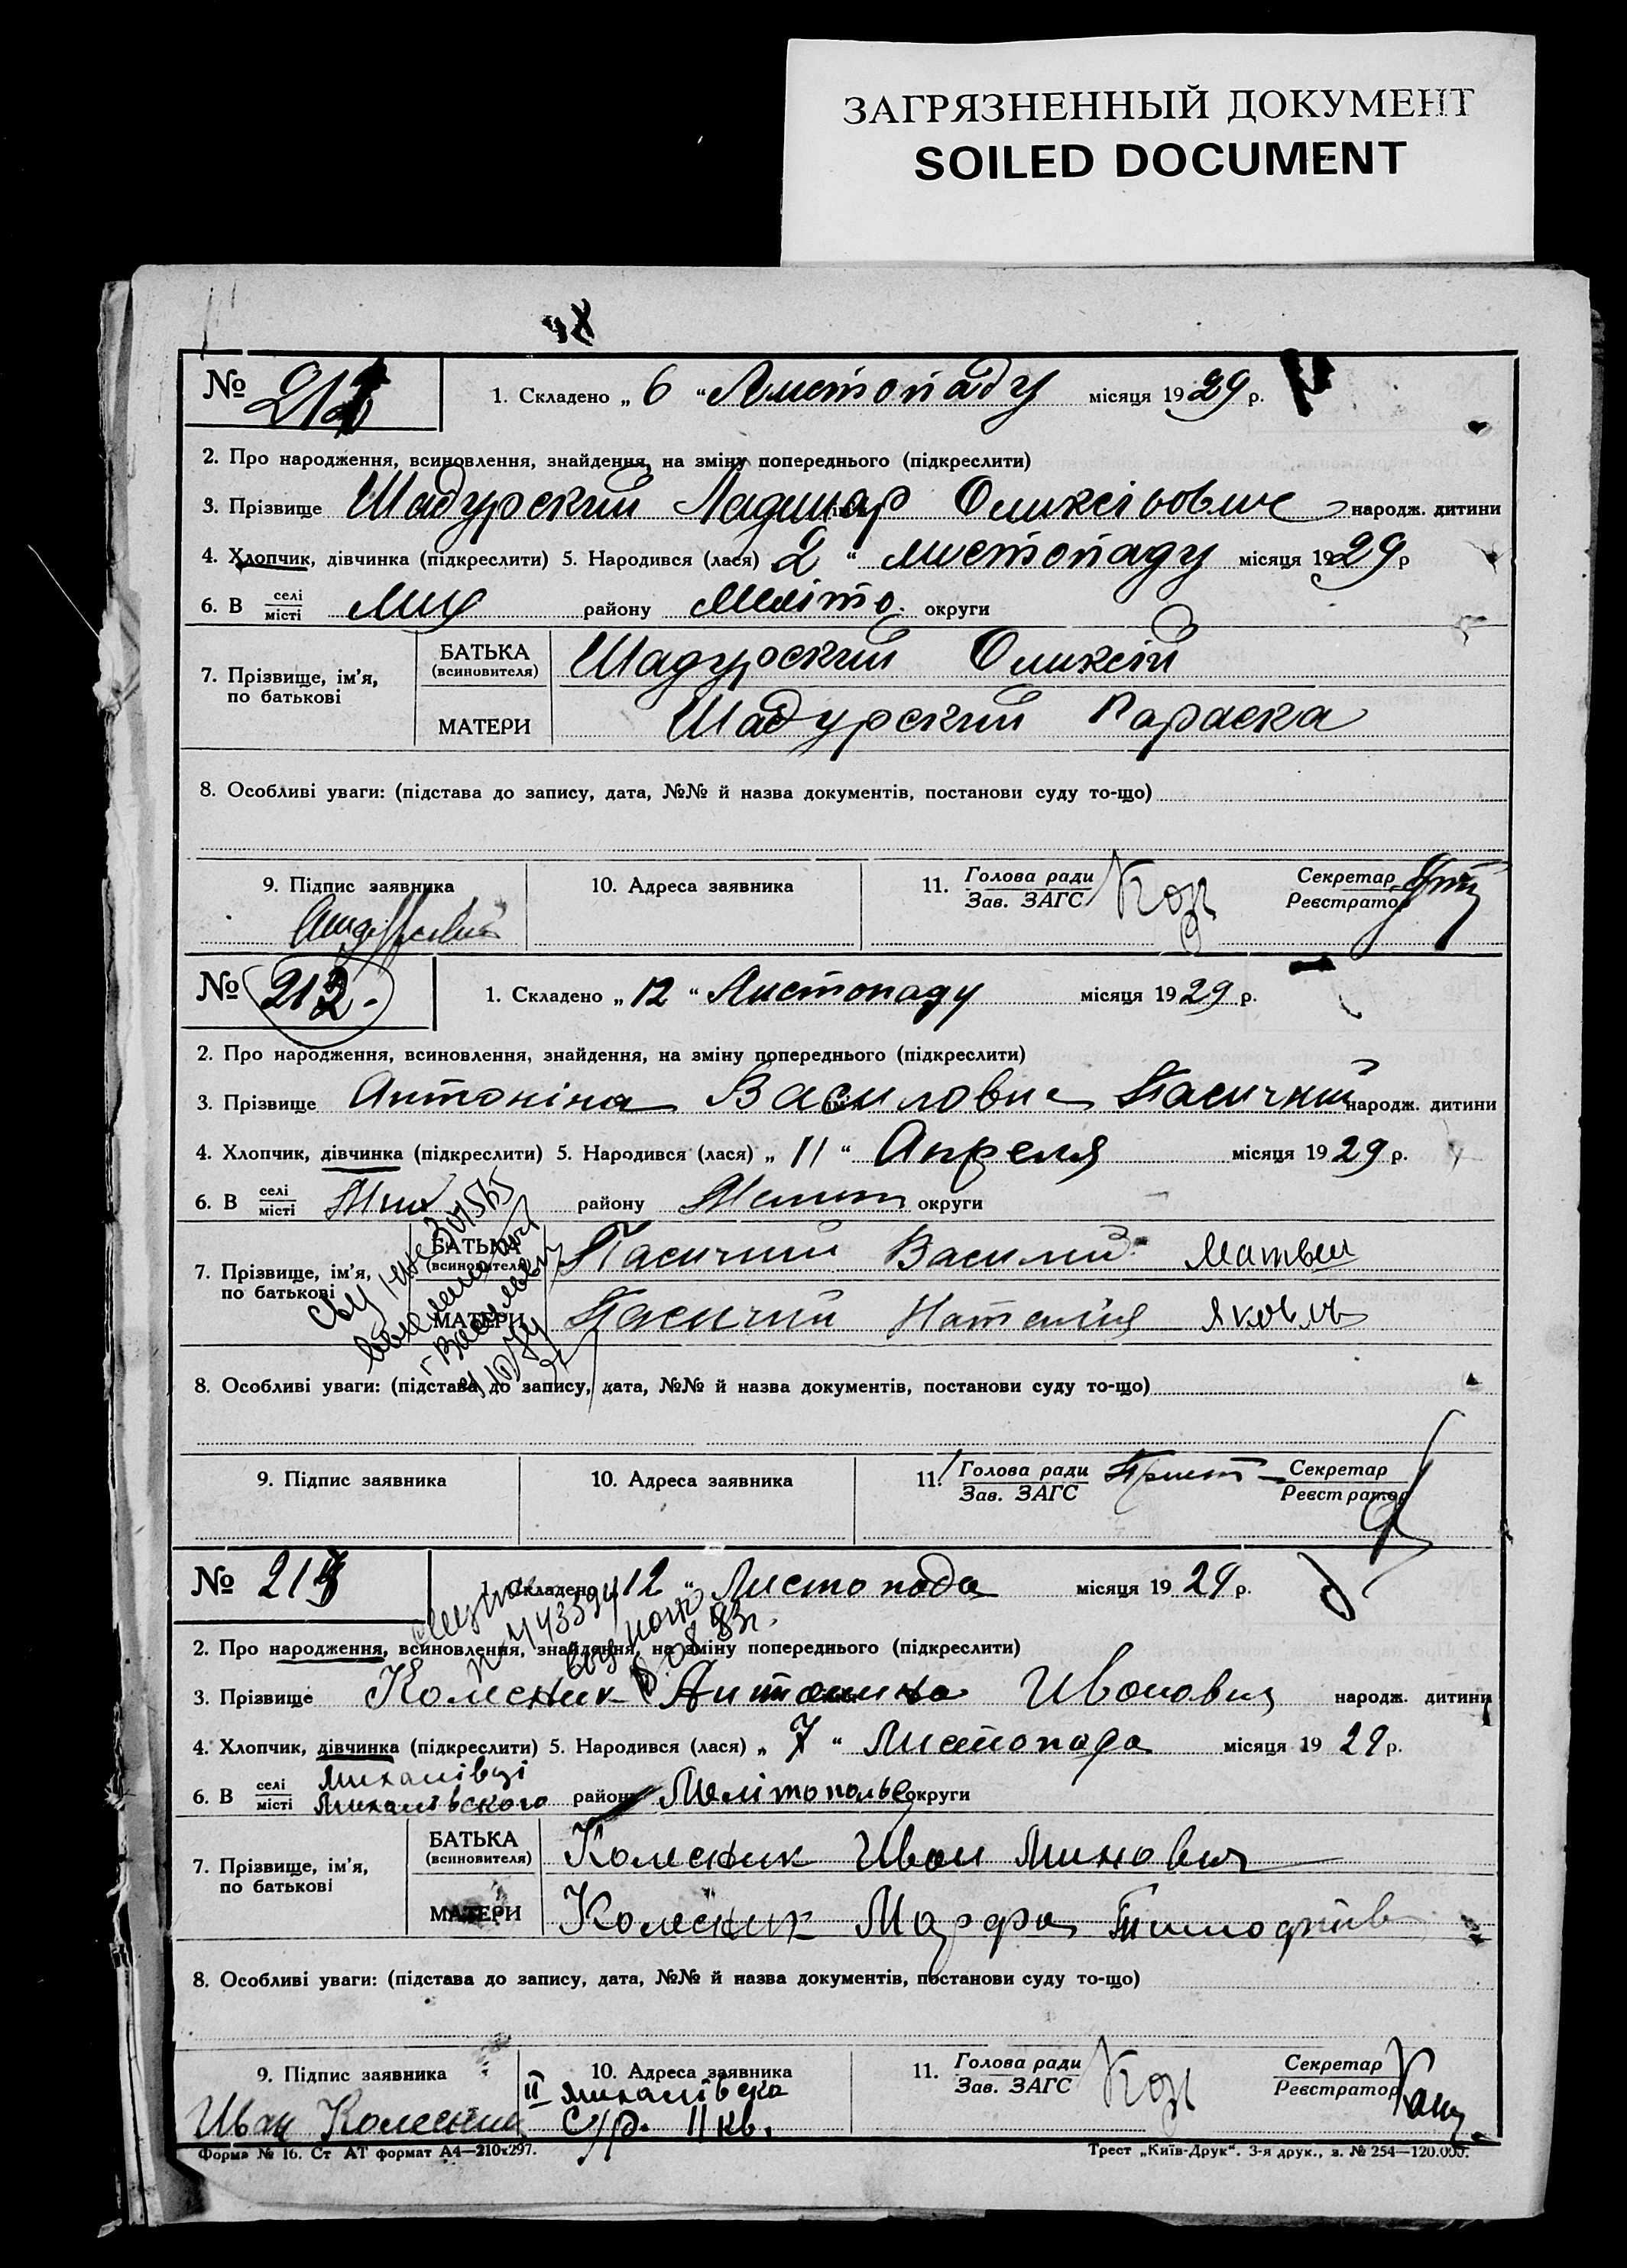 ЗАГРЯЗНЕННЫЙ ДОКУМЕНТ
SOILED DOCUMENT
№ 211
1. Складено „ 6 “ Листопаду місяця 1929 р.
2. Про народження, всиновлення, знайдення, на зміну попереднього (підкреслити)
3. Прізвище Шадурский Ладимар Оликсіьовыч народж. дитини
4. Хлопчик, дівчинка (підкреслити) 5. Народився (лася) 2 “ листопаду місяця 1929 р
6. В селі/місті Мих району Меліто. округи
7. Прізвище, ім'я, по батькові
БАТЬКА (всиновителя) Шадурский Оликсій
МАТЕРИ Шадурский Параска
8. Особливі уваги: (підстава до запису, дата, №№ й назва документів, постанови суду то-що)
9. Підпис заявника
10. Адреса заявника
11. Голова ради/Зав. ЗАГС Коз
Секретар/Реєстратор
№ 212.
1. Складено „ 12 “ Листопаду місяця 1929 р.
2. Про народження, всиновлення, знайдення, на зміну попереднього (підкреслити)
3. Прізвище Антоніна Василовне Пасичний народж. дитини
4. Хлопчик, дівчинка (підкреслити) 5. Народився (лася) „ 11 “ Апреля місяця 1929 р.
6. В селі/місті Мих району Мелит округи
7. Прізвище, ім'я, по батькові
БАТЬКА (всиновителя) Пасичний Василий Матвеи
МАТЕРИ Пасичний Наталия Яковлв
8. Особливі уваги: (підстава до запису, дата, №№ й назва документів, постанови суду то-що)
9. Підпис заявника
10. Адреса заявника
11. Голова ради/Зав. ЗАГС
Секретар/Реєстратор
№ 213
1. Складено „ 12 “ Листопада місяця 1929 р.
2. Про народження, всиновлення, знайдення, на зміну попереднього (підкреслити)
3. Прізвище Колесник Антонина Ивановна народж. дитини
4. Хлопчик, дівчинка (підкреслити) 5. Народився (лася) „ 7 “ Листопада місяця 1929 р.
6. В селі/місті Михалівці Михалівского району Мелітопольс округи
7. Прізвище, ім'я, по батькові
БАТЬКА (всиновителя) Колесник Иван Минович
МАТЕРИ Колесник Марфа Тимофіїв
8. Особливі уваги: (підстава до запису, дата, №№ й назва документів, постанови суду то-що)
9. Підпис заявника Иван Колесник
10. Адреса заявника II Михалівска с/р. 11 кв.
11. Голова ради/Зав. ЗАГС Коз
Секретар/Реєстратор
Форма № 16. Ст АТ формат А4—210x297.
Трест „Київ-Друк“. 3-я друк., з. № 254—120.000.